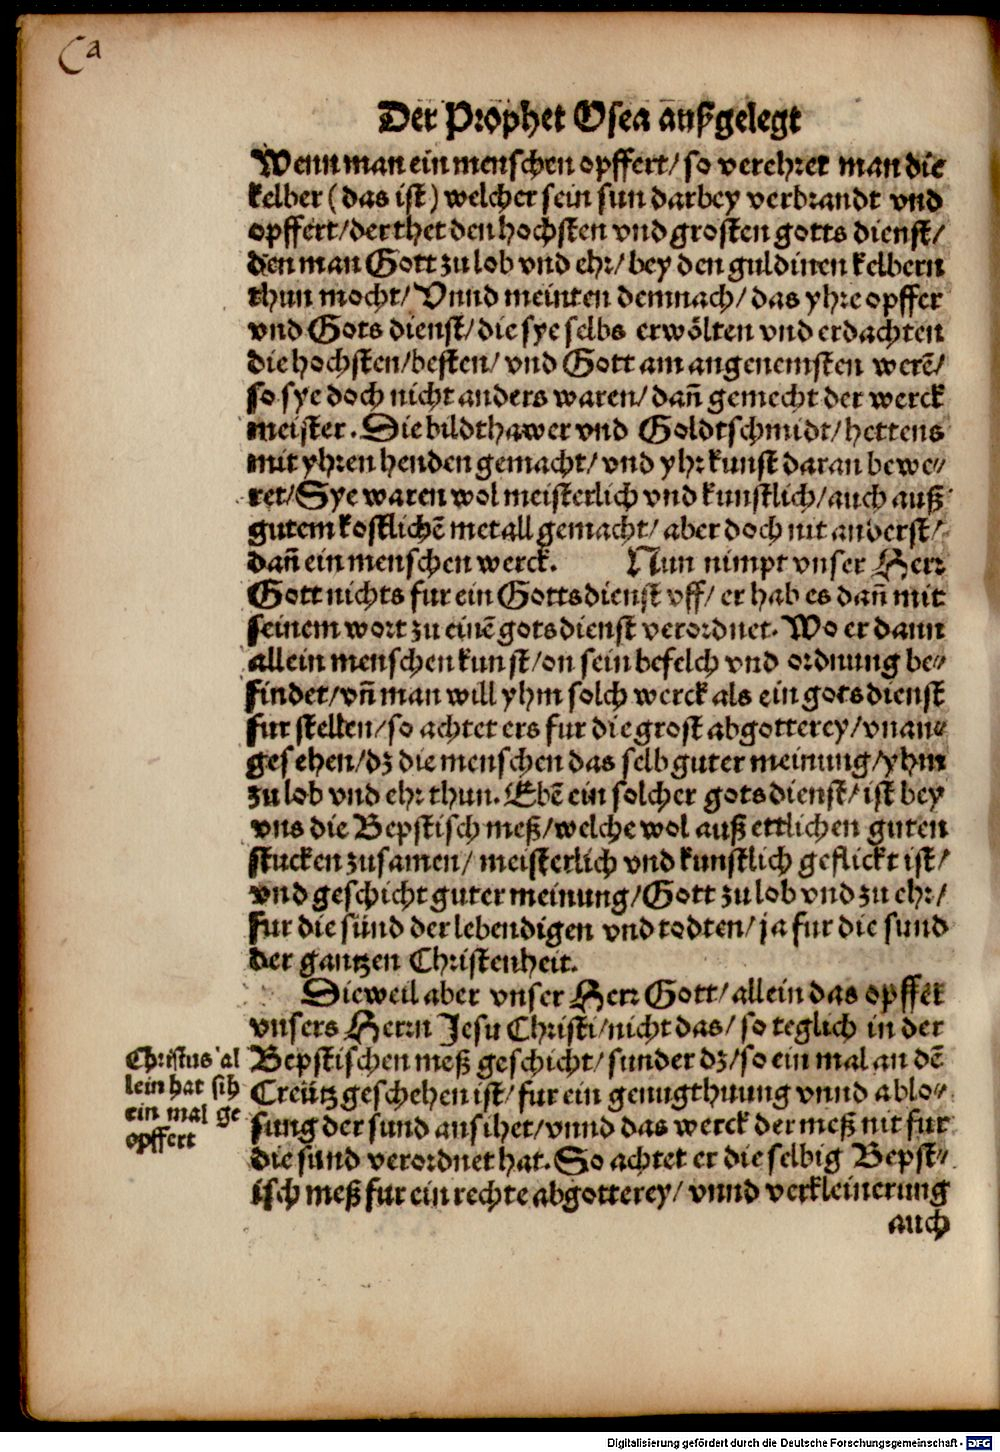 Ca
Der Prophet Osea außgelegt
Wenn man ein menschen opffert/ so verehret man die
kelber (das ist) welcher sein sun darbey verbrandt vnd
opffert/ der thet den hochsten vnd grosten gotts dienst/
den man Gott zu lob vnd ehr/ bey den guldinen kelbern
thun mocht/ Vnnd meinten demnach/ das yhre opffer
vnd Gots dienst/ die sye selbs erwölten vnd erdachten
die hochsten/ besten/ vnd Gott am angenemsten werē/
so sye doch nicht anders waren/ dañ gemecht der werck
meister. Die bildthawer vnd Goldtschmidt/ hettens
mit yhren henden gemacht/ vnd yhr kunst daran bewe⸗
ret/ Sye waren wol meisterlich vnd kunstlich/ auch auß
gutem kostlichē metall gemacht/ aber doch nit anderst/
dañ ein menschen werck. Nun nimpt vnser Herr
Gott nichts fur ein Gottsdienst vff/ er hab es dañ mit
seinem wort zu einē gotsdienst verordnet. Wo er dann
allein menschen kunst/ on sein befelch vnd ordnung be⸗
findet/ vñ man will yhm solch werck als ein gotsdienst
fur stellen/ so achtet ers fur die grost abgotterey/ vnan⸗
gesehen/ dz die menschen das selb guter meinung/ yhm
zu lob vnd ehr thun. Ebē ein solcher gotsdienst/ ist bey
vns die Bepstisch meß/ welche wol auß ettlichen guten
stucken zusamen/ meisterlich vnd kunstlich geflickt ist/
vnd geschicht guter meinung/ Gott zu lob vnd zu ehr/
fur die sünd der lebendigen vnd todten/ ja fur die sund
der gantzen Christenheit.
Dieweil aber vnser Herr Gott/ allein das opffer
vnsers Herrn Jesu Christi/ nicht das/ so teglich in der
Bepstischen meß geschicht/ sunder dz/ so ein mal an dē
Creütz geschehen ist/ fur ein genugthuung vnnd ablo⸗
sung der sund ansihet/ vnnd das werck der meß nit fur
die sünd verordnet hat. So achtet er die selbig Bepst⸗
isch meß fur ein rechte abgotterey/ vnnd verkleinerung
auch
Christus al
lein hat sih
ein mal ge
opffert
Digitalisierung gefördert durch die Deutsche Forschungsgemeinschaft - DFG